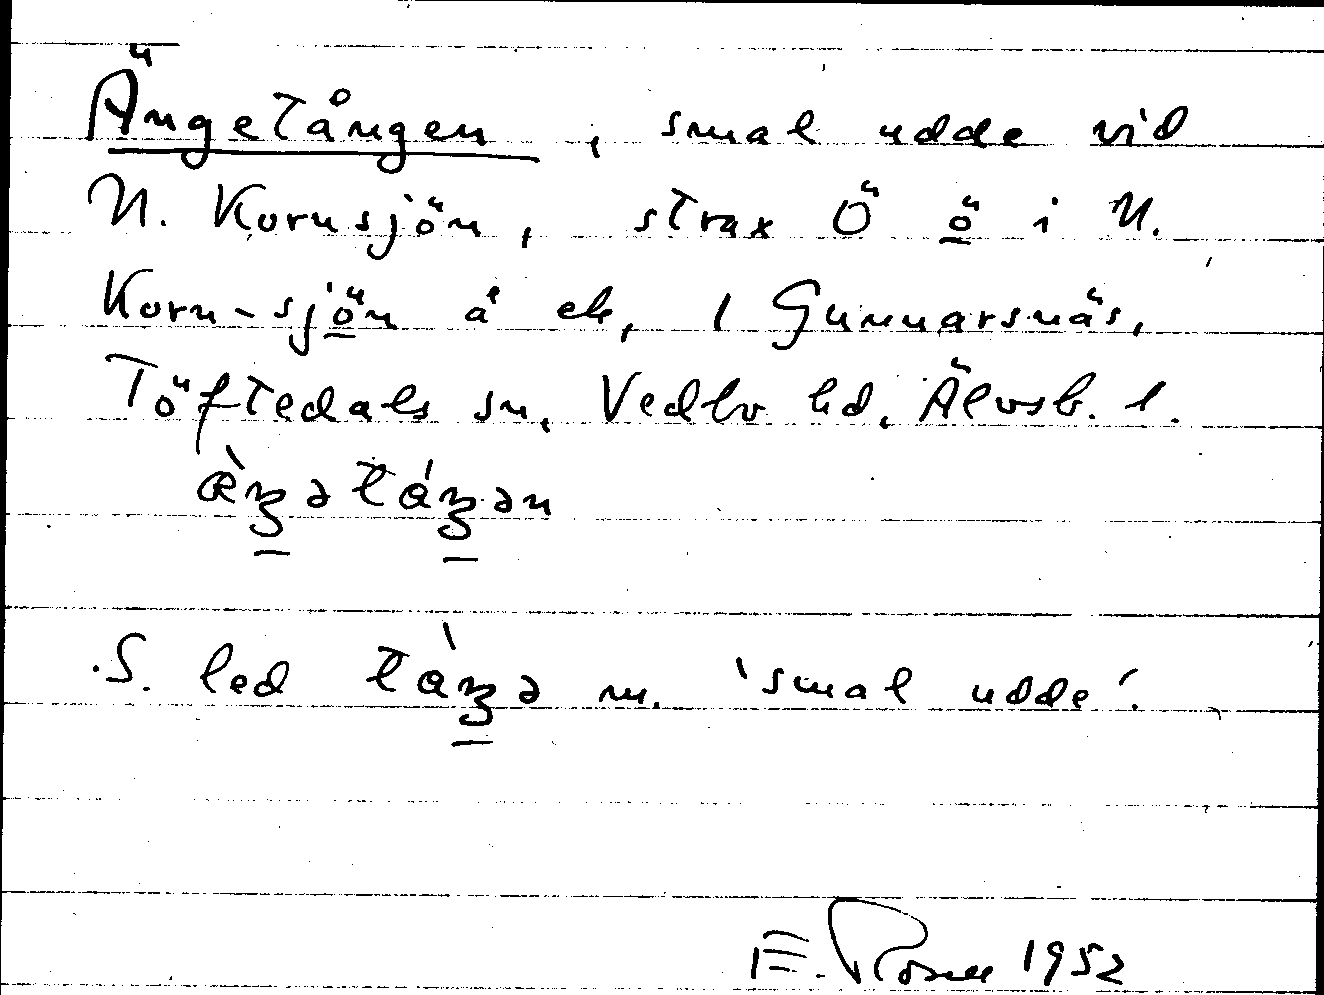 Ängetången, smal udde vid
N. Kornsjön, strax Ö ö i N.
Korn-sjön å ek, 1 Gunnarsnäs,
Töftedals sn, Vedbo hd, Älvsb. l.
S. led m. 'smal udde'.
E. Rosell 1952